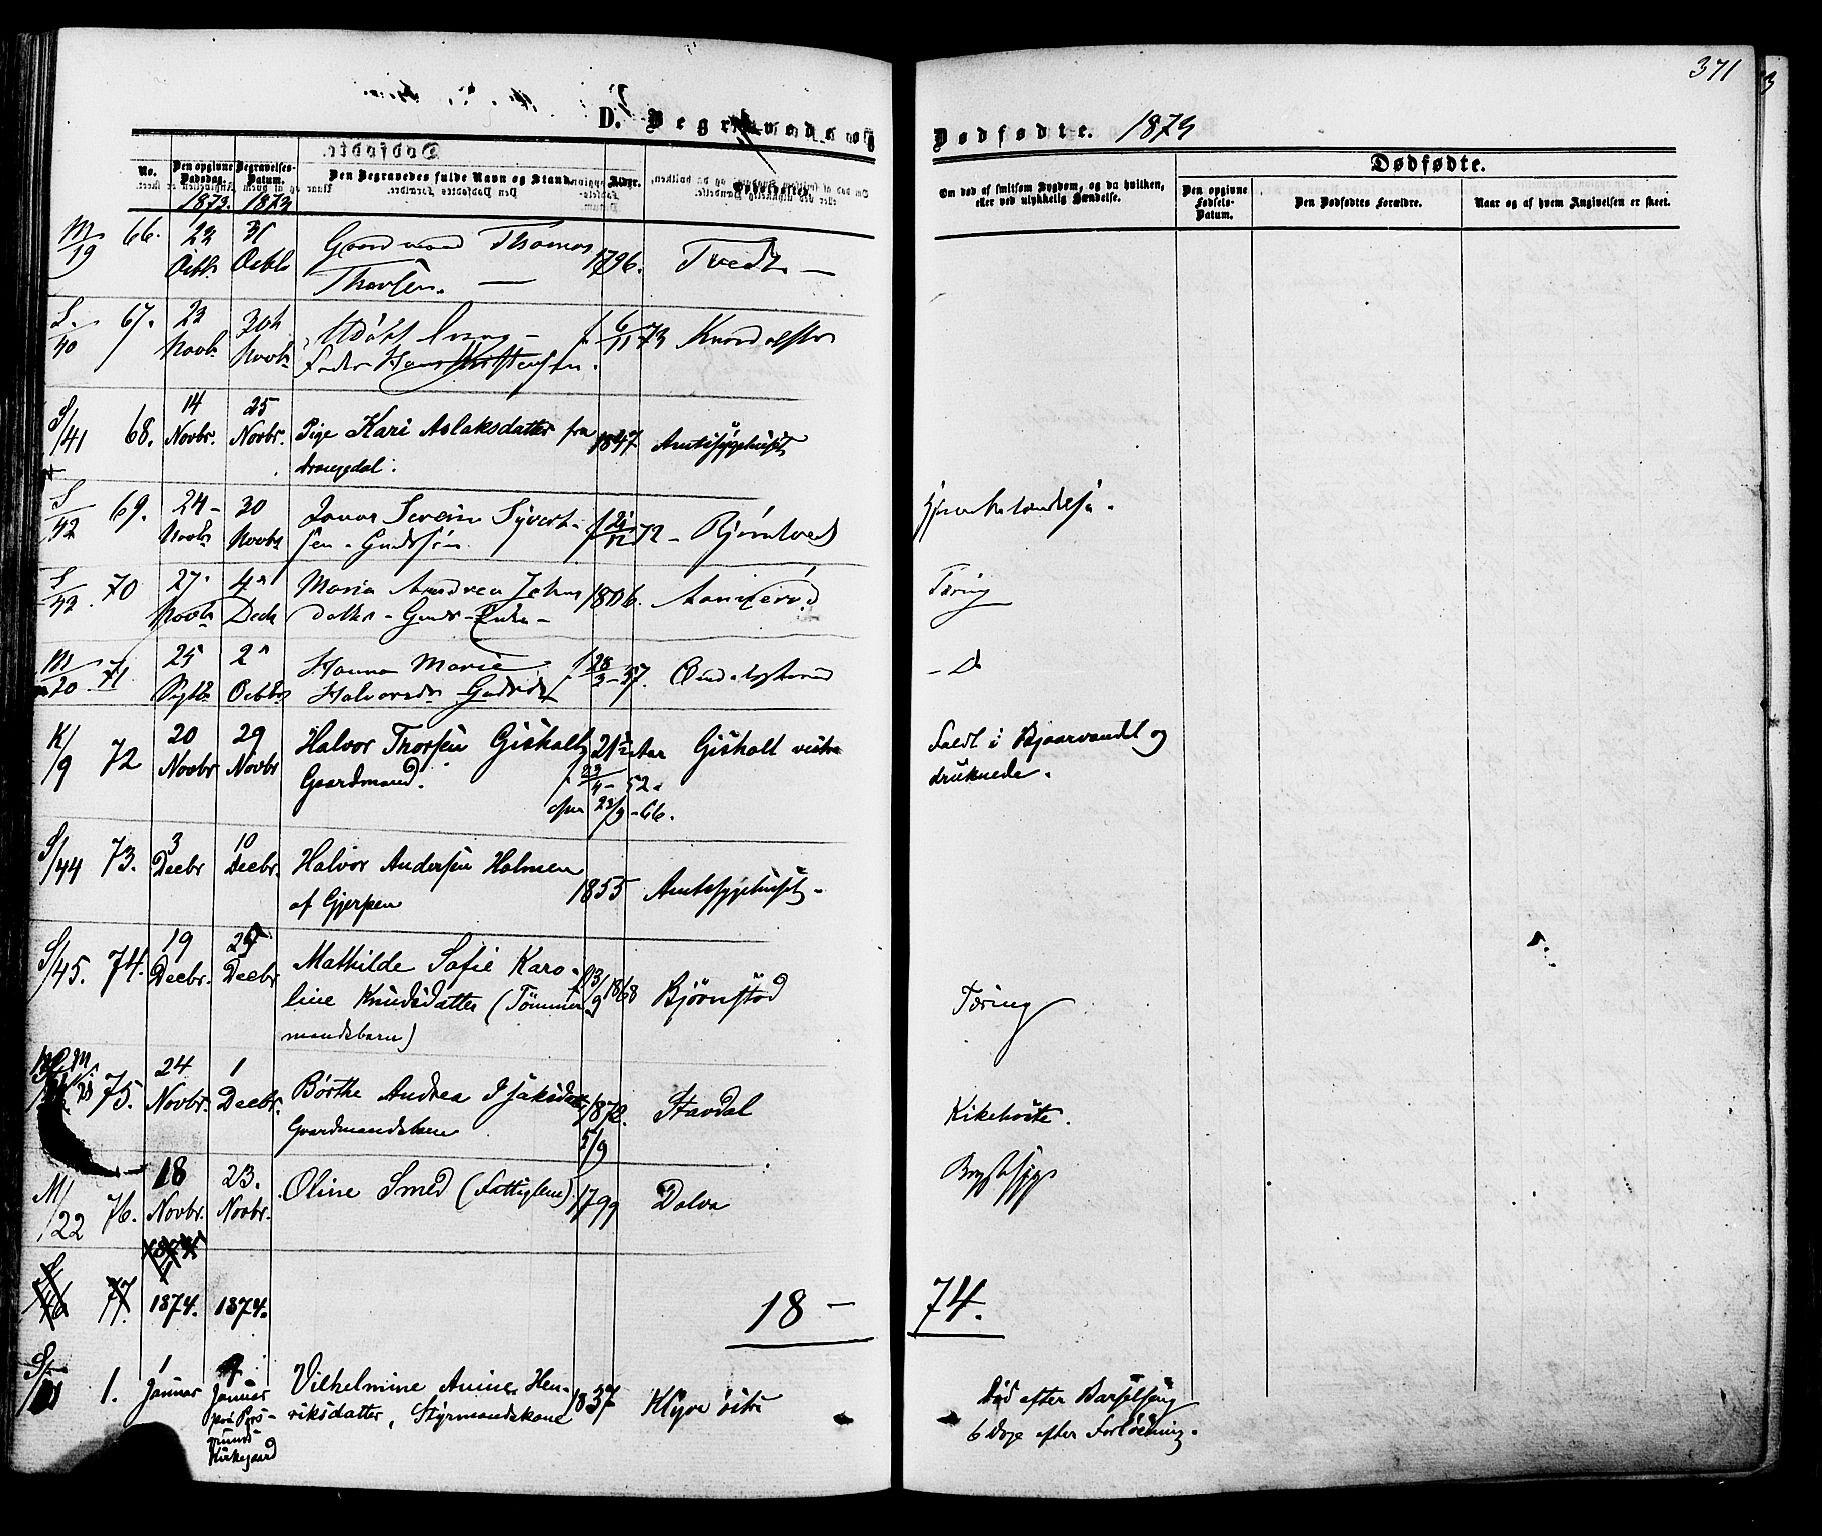 371
D. Begravede og Dødfødte. 1873
Dødfødte.
No.
Den opgivne Dødsdag.
Begravelses-Datum.
Den Begravedes fulde Navn og Stand.
Alder.
Om død af smitsom Sygdom, og da hvilken,
eller ved ulykkelig Hændelse.
Den opgivne Fødsels-Datum.
Den Dødfødtes Forældre.
Naar og af hvem Angivelsen er skeet.
1873. 1873
M/19 66. 31 Octb Gaardmand Thomas
Thorsen. 1796. Tvedt
S./40 67. 23 Novb. 30t Novb. Udøbt
Fader Hans 6/11 73
S/41 68. 14 Novbr. 25 Novbr. Pige Kari Aslaksdatter fra
Drangedal. 1847 Amtssygehuset
S/42 69. 24 Novb 30 Novb Severin Syvert-
sen 72 Bjørntvedt
70 27 Novb 4 Decb Maria Andrea
1806. Tæring
M/20 71 25 2 Octb Hanna Marie
Halvorsdr 28/3 57. Do
K/9 72 20 Novbr 29 Novbr Halvor Thorsen Gisholt
Gaardmand. 21½ Aar Gisholt vestre Faldt i Bjaarvandet og
druknede.
23/4 - 52.
23/9 - 66.
S/44 73. 3 Decbr 10 Decbr. Halvor Andersen Holmen
af Gjerpen 1855 Amtssygehuset
S/45. 74. 19 Decbr. Decbr Mathilde Sofie Karo-
line Knudsdatter (Tømmer-
mandsbarn) f. 13/9 1868 Bjørnstad Tæring
75. 24 Novbr. 1 Decbr. Børthe Andrea Isaksdtr
Gaardmandsbarn 1872. 5/9 Stavdal Kikehoste.
M/22 76. 18 Novbr. 23. Novbr. Oline Smed (Fattiglem) 1799 Dalva Brystsyge
77. 1874. 1874. 18 - 74.
S/1 1. 1 Januar Januar
paa Pors-
grunds
Kirkegaard
Vilhelmine Anine Hen-
riksdatter, Styrmandskone 1837 Klyve østre Død efter Barselseng
6 Dage efter Forløsning.